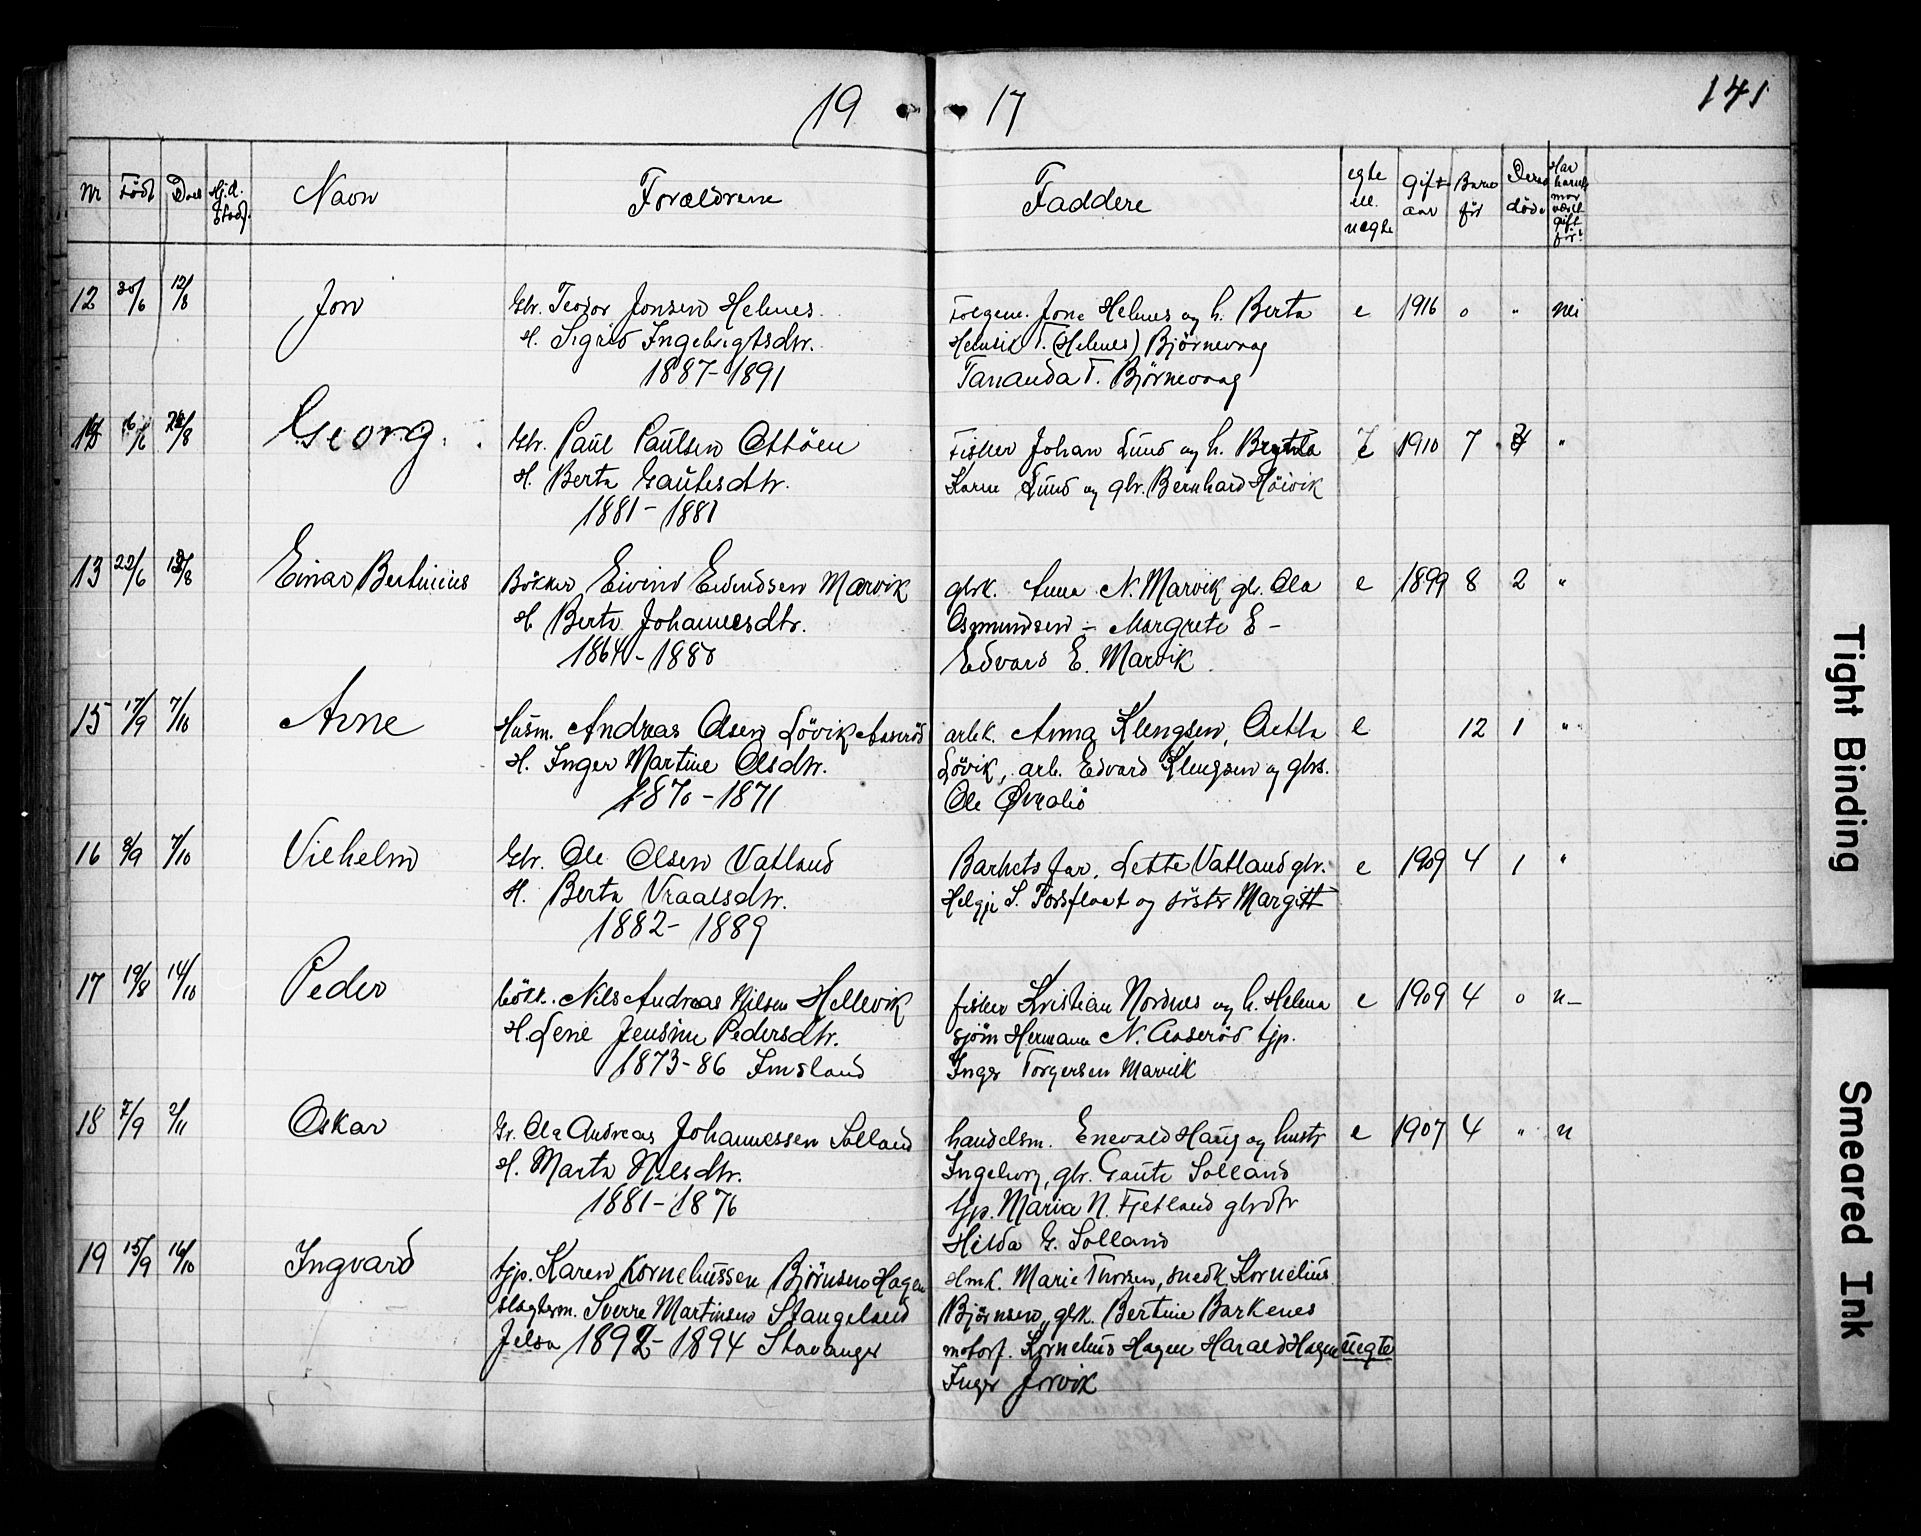 19 17
141
Nr Født Døbt Hj.d. Stadf. Navn Forældrene Faddere egte ell. uegte Gift aar Barn før Deraf døde Har barnets mor været gift før?
12 30/6 12/8 Jon Gbr. Teodor Jonsen Helnes. Folgem. Jone Helnes og h. Berta e 1916 0 " nei
H. Sigrid Ingebrigtsdtr. Helmik T. (Helnes) Bjørnevaag
1887-1891 Tananda T. Bjørnevaag
16/6 26/8 Georg. Gbr. Paul Paulsen Ottöen Fisker Johan Lund og h. Bertha e 1910 7 "
H. Berta Gautesdtr. Karen Lund og gbr. Bernhard Höivik
1881-1881
13 22/6 Einar Bertinius Bökker Eivind Eivindsen Marvik gbrk. Anna N. Marvik gbr. Ola e 1899 8 2 "
H. Berta Johannesdtr. Osmundsen - Margrete E -
1864-1880 Edvard E. Marvik
15 17/9 7/10 Arne Husm. Andreas Olsen Lövik Aaseröd arbk. Anna Klengsen, Oletta e 12 1 "
H. Inger Martine Olsdtr. Lövik, arb. Edvard Klengsen og gbrs.
1870-1871 Ole Øvralid
16 8/9 7/10 Vilhelm Gbr. Ole Olsen Vatland Barnets far, Lette Vatland gbr. e 1909 4 1 "
H. Berta Vraalsdtr. Helgje S. Forsfloat og söster Margitt
1882-1889
17 19/8 14/10 Peder bökk. Nils Andreas Nilsen Hellevik fisker Kristian Nordnes og h. Helena e 1909 4 0 n-
H. Lene Jensine Pedersdtr. sjöm Hermann N. Aaseröd tjp.
1873-86 Imsland Inger Torgersen Marvik
18 7/9 2/11 Oskar Gr. Ola Andreas Johannessen Solland handelsm. Enevald Haug og hustr e 1907 4 " n
H. Marta Nilsdtr. Ingeborg, gbr. Gaute Solland
1881-1876 tjp. Maria N. Fjetland gbrdtr
Hilda G. Solland
19 15/9 14/10 Ingvard tjp. Karen Korneliussen Björnsen Hagen Hmk. Marie Thorsen, snedk Kornelius
slagterm. Sverre Martinsen Stangeland Björnsen, gbk. Bertine Barkenes
Jelsa 1892-1894 Stavanger motorf. Kornelius Hagen Harald Hagen uegte
Inger Jorvik
Tight Binding
Smeared Ink